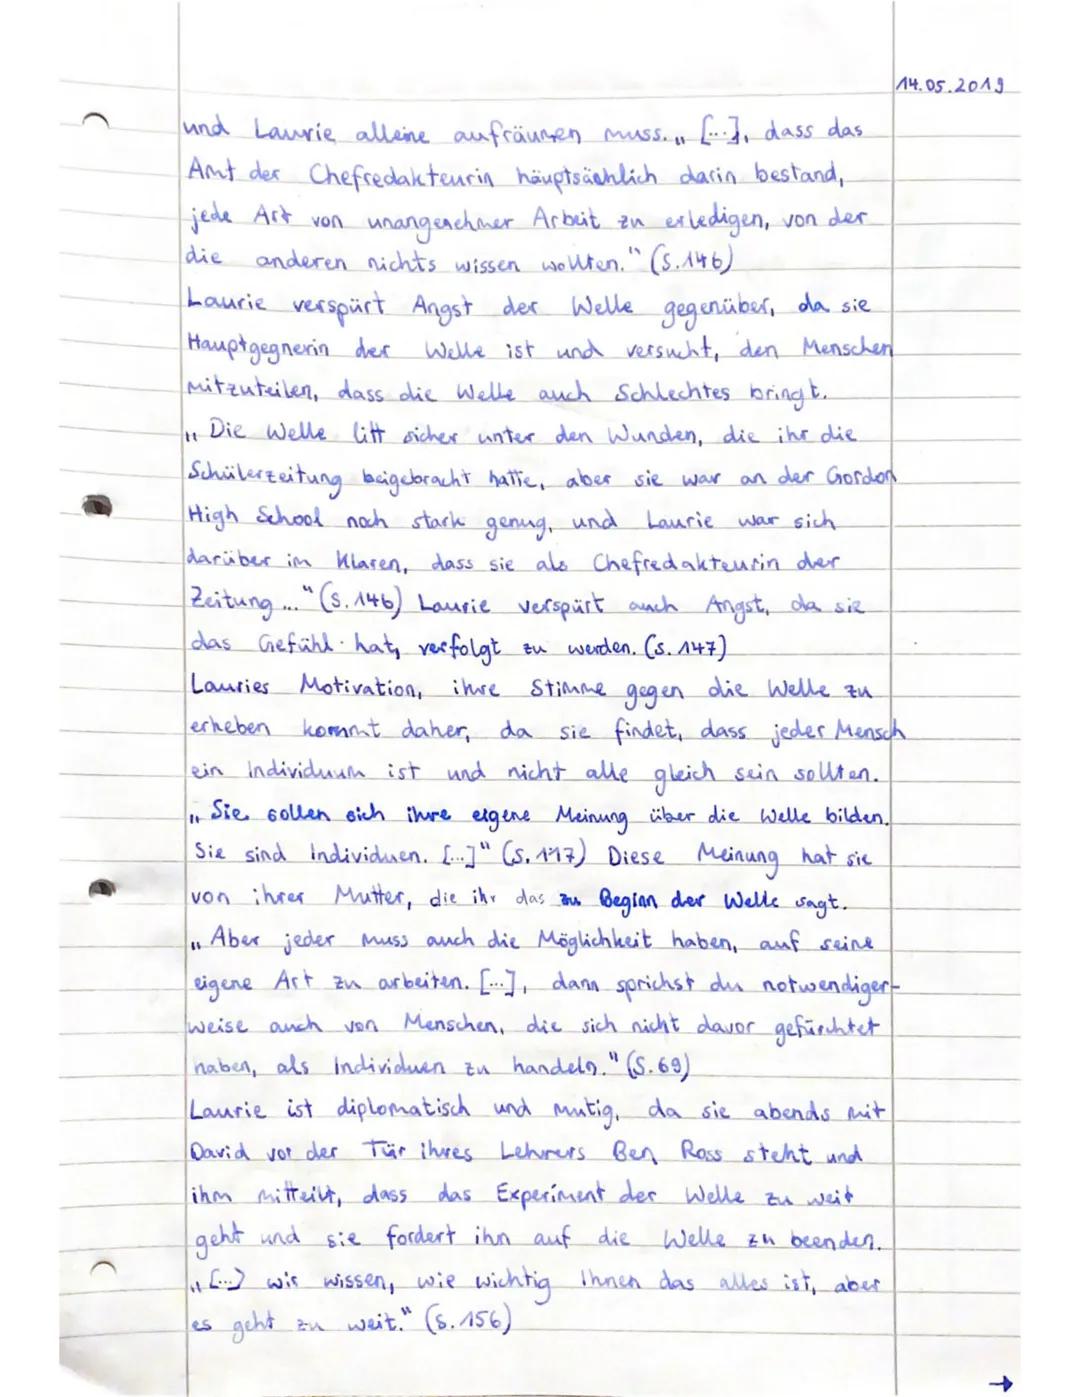 14.05.2019
und Laurie alleine aufräumen muss. „ [...], dass das
Amt der Chefredakteurin häuptsächlich darin bestand,
jede Art von unangenehmer Arbeit zu erledigen, von der
die anderen nichts wissen wollten." (S.146)
Laurie verspürt Angst der Welle gegenüber, da sie
Hauptgegnerin der Welle ist und versucht, den Menschen
mitzuteilen, dass die Welle auch Schlechtes bringt.
„ Die Welle litt sicher unter den Wunden, die ihr die
Schülerzeitung beigebracht hatte, aber sie war an der Gordon
High School noch stark genug, und Laurie war sich
darüber im Klaren, dass sie als Chefredakteurin der
Zeitung ..." (S.146) Laurie verspürt auch Angst, da sie
das Gefühl hat, verfolgt zu werden. (S.147)
Lauries Motivation, ihre Stimme gegen die Welle zu
erheben kommt daher, da sie findet, dass jeder Mensch
ein Individuum ist und nicht alle gleich sein sollten.
„ Sie sollen sich ihre eigene Meinung über die Welle bilden.
Sie sind Individuen. [...]" (S. 117) Diese Meinung hat sie
von ihrer Mutter, die ihr das zu Beginn der Welle sagt.
„ Aber jeder muss auch die Möglichkeit haben, auf seine
eigene Art zu arbeiten. [...], dann sprichst du notwendiger-
weise auch von Menschen, die sich nicht davor gefürchtet
haben, als Individuen zu handeln." (S.69)
Laurie ist diplomatisch und mutig, da sie abends mit
David vor der Tür ihres Lehrers Ben Ross steht und
ihm mitteilt, dass das Experiment der Welle zu weit
geht und sie fordert ihn auf die Welle zu beenden.
„ [...] wir wissen, wie wichtig Ihnen das alles ist, aber
es geht zu weit." (S.156)
→